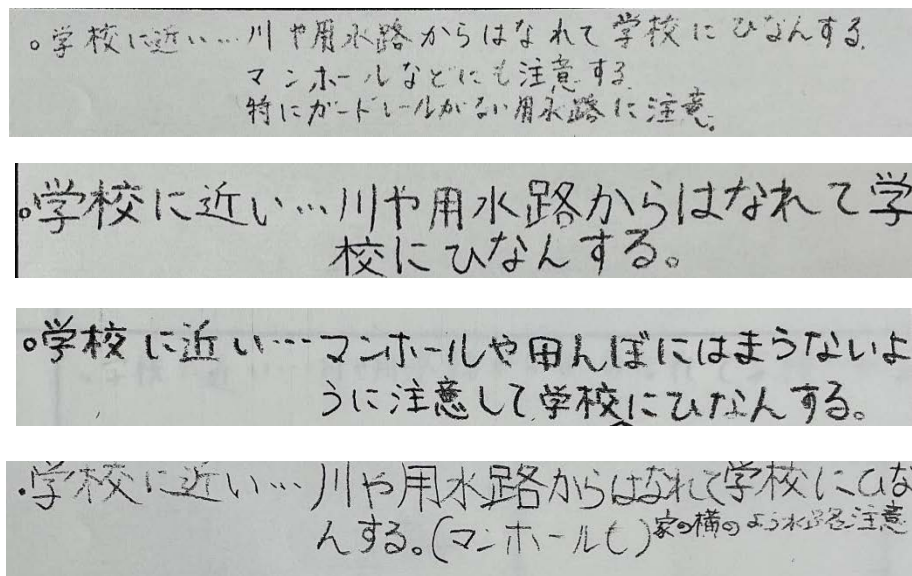 。学校に近い…川や用水路からはなれて学校にひなんする。
マンホールなどにも注意する
特にガードレールがない用水路に注意。
。学校に近い…川や用水路からはなれて学
校にひなんする。
。学校に近い…マンホールや田んぼにはまらないよ
うに注意して学校にひなんする。
・学校に近い…川や用水路からはなれて学校にひな
んする。(マンホールも)家の横のようすい路注意